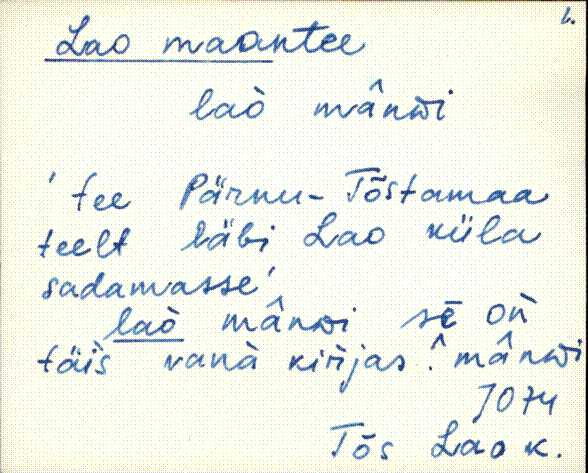 L.
Lao maantee
laò mânwi
'tee Pärnu-Tõstamaa
teelt läbi Lao küla
sadamasse'
laò mânwi sē oǹ
vanà mânwi
JO74
Tõs Lao k.